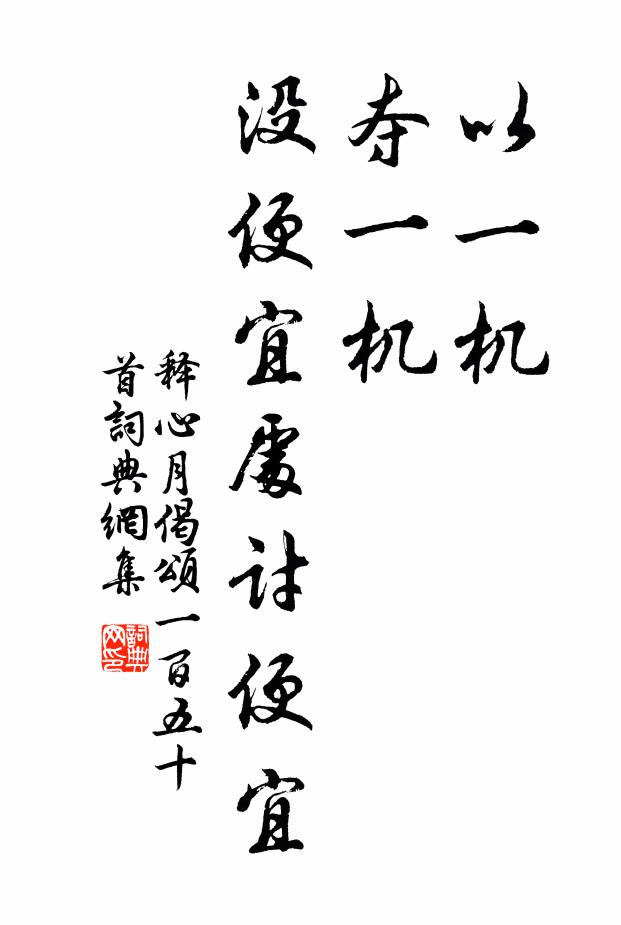 以一机
夺一机
没便宜處討便宜
释心月偈頌一百五十
首詞典網集
詞典网印